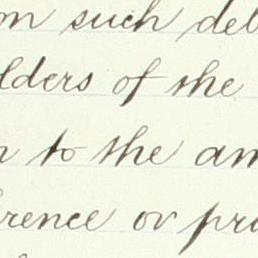 such deb
lders of the
to the am
rence or pr